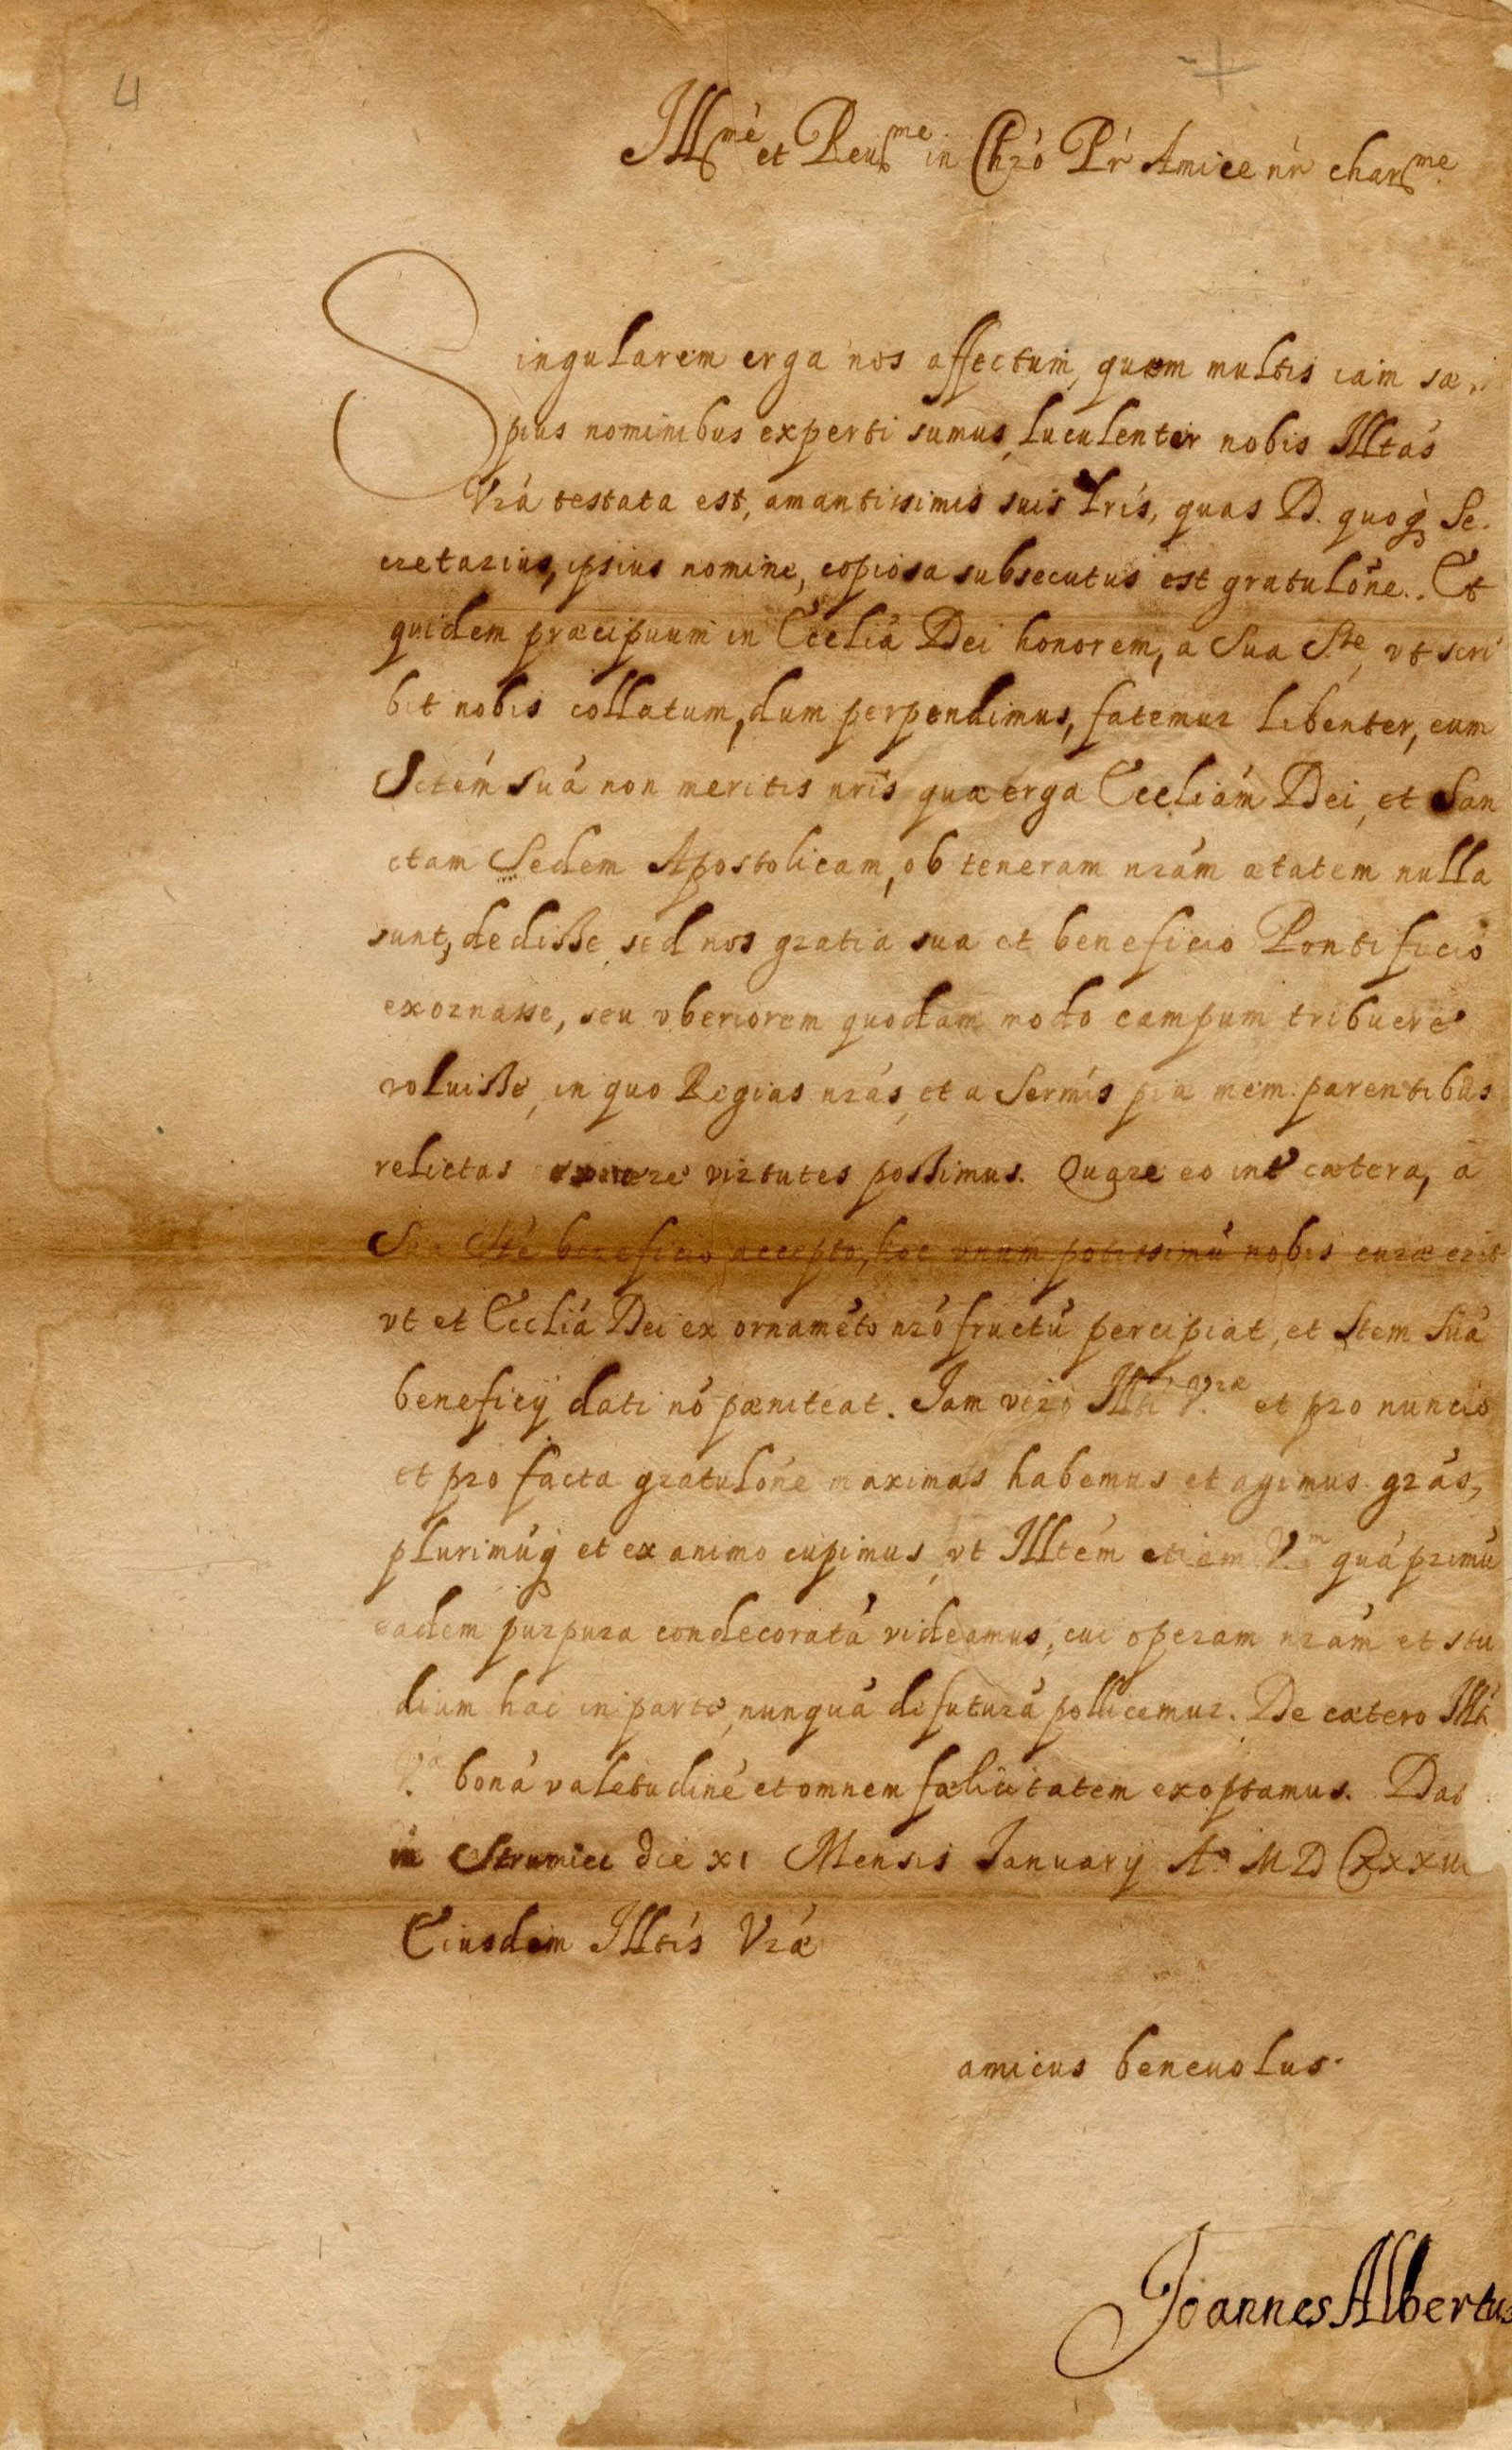 4
Illme et Reume in Chro Pr Amice nr charme.
Singularem erga nos affectum, quem multis iam sæ
pius nominibus experti sumus, luculenter nobis Illtas
Vra testata est, amantissimis suis lris, quas D. quoq Se.
cretarius, ipsius nomine, copiosa subsecutus est gratulone. Et
quidem præcipuum in Ecclia Dei honorem, a Sua Ste, vt scri
bit nobis collatum, dum perpendimus, fatemur libenter, eum
Sctem Sua non meritis nris quæ erga Eccliam Dei, et San
ctam Sedem Apostolicam, ob teneram nram ætatem nulla
sunt, dedisse, sed nos gratia sua et beneficio Pontificio
exornasse, seu vberiorem quodam modo campum tribuere
voluisse, in quo Regias nras, et a Sermis piæ mem. parentibus
relictas virtutes possimus. Quare eo int cætera, a
Sua Ste beneficio accepto, hoc vnum potissimu nobis curæ erit
vt et Ecclia Dei ex ornameto nro fructu percipiat, et Stem Sua
beneficij dati no pæniteat. Iam vero Illti Vræ et pro nuncio
et pro facta gratulone maximas habemus et agimus gras,
plurimuq et ex animo cupimus, vt Illtem etiam V.m qua primu
eadem purpura condecorata videamus, cui operam nram et stu
dium hac in parte, nunqua defutura pollicemur. De cætero Illti
V. bona valetudine et omnem fælicitatem exoptamus. Dat
in die XI Mensis Ianuarij Ao MDCXXXIII
Eiusdem Illtis Vræ
amicus beneuolus.
Joannes Albertus